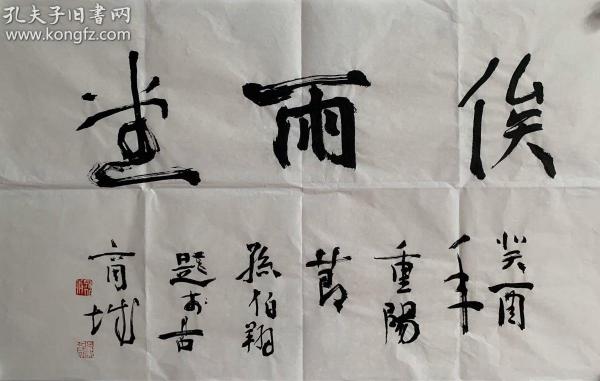 孔夫子旧书网
www.kongfz.com
俟雨堂
癸酉
年
重陽
節
孫伯翔
題於古
商城